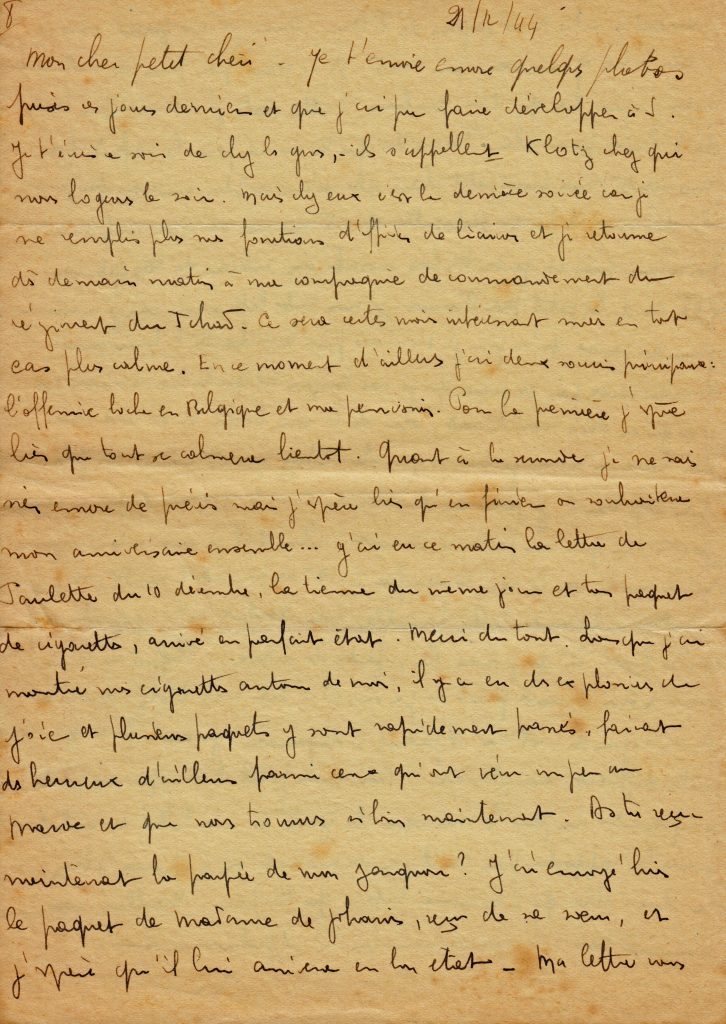 8
21/12/44
Mon cher petit chéri - Je t'envoie encore quelqs photos
prises ces jours derniers et que j'ai pu faire développer à S.
Je t'écris ce soir de chez ls gens, - ils s'appellent Klotz chez qui
nous logeons le soir. Mais chez eux c'est la dernière soirée car je
ne remplis plus mes fonctions d'officier de liaison et je retourne
dès demain matin à ma compagnie de commandement du
régiment du Tchad. Ce sera certes moins intéressant mais en tout
cas plus calme. En ce moment d'ailleurs j'ai deux soucis principaux :
l'offensive boche en Belgique et ma permission. Pour la première j'espère
bien que tout se calmera bientot. Quant à la seconde je ne sais
rien encore de précis mais j'espère bien qu'en février on souhaitera
mon anniversaire ensemble... J'ai eu ce matin la lettre de
Paulette du 10 décembre, la tienne du même jour et ton paquet
de cigarettes, arrivé en parfait état. Merci du tout. Lorsque j'ai
montré mes cigarettes autour de moi, il y a eu des explosions de
joie et plusieurs paquets y sont rapidement passés, faisant
ds heureux d'ailleurs parmi ceux qui ont vécu un peu au
Maroc et que nous trouvons si loin maintenant. As tu reçu
maintenant la poupée de mon Janquou ? J'ai envoyé hier
le paquet de Madame de Johanis, reçu de sa soeur, et
j'espère qu'il lui arrivera en bon état - Ma lettre vous